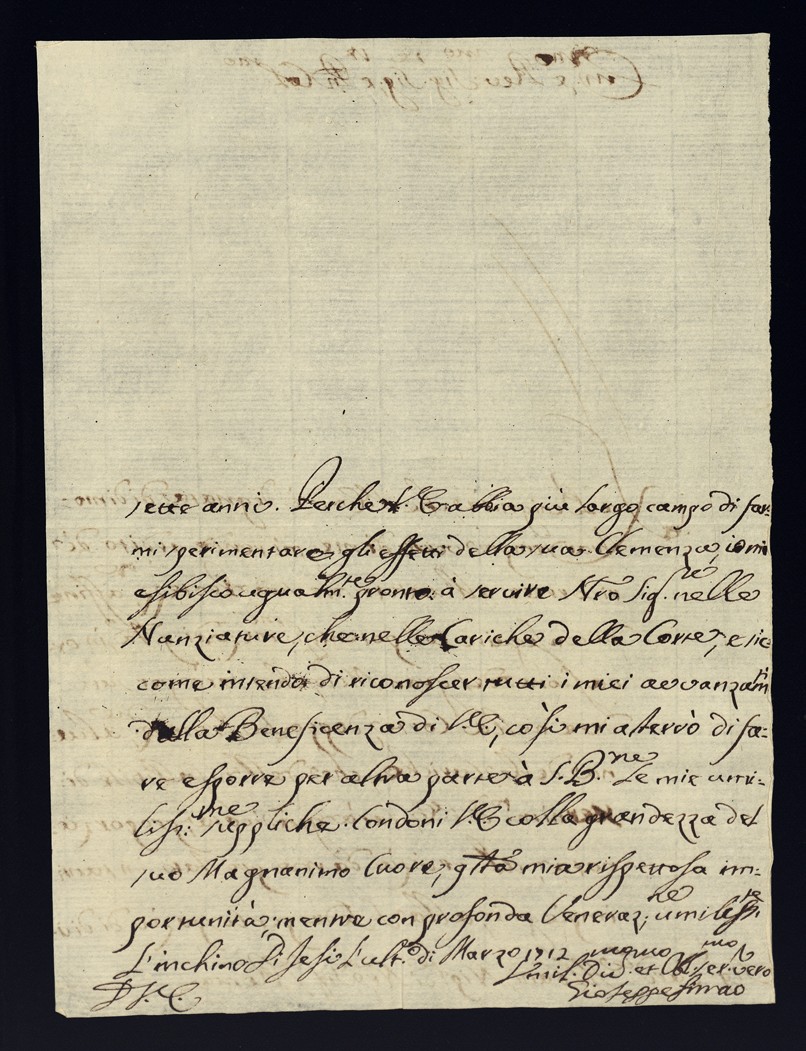 sette anni. Perche V.E. abbia più largo campo di far-
mi sperimentare gli effetti della sua Clemenza, io mi
esibisco ugualm.te pronto à servire Nr̃o Sig.re nelle
Nunziature, che nelle Cariche della Corte, e sic-
come intendo di riconoscer tutti i miei avvanzam.ti
dalla Beneficenza di V.E., così mi asterrò di fa-
re esporre per altra parte à S.B.ne Le mie umi-
liss:me suppliche. Condoni V.E. colla grandezza del
suo Magnanimo Cuore, q̃sta mia rispettosa im-
portunità; mentre con profonda Veneraz:ne umilissi
L'inchino. Di Jesi L'ult.o di Marzo 1712
D. V.E.
Umil. Div. et Obl. ser. vero
Gioseppe